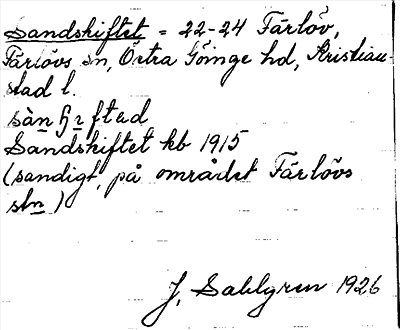 Sandskiftet = 22-24 Färlöv,
Färlövs sn, Östra Göinge hd, Kristian-
stad l.
Sandskiftet kb 1915
(sandigt, på området Färlövs
stn)
J. Sahlgren 1926